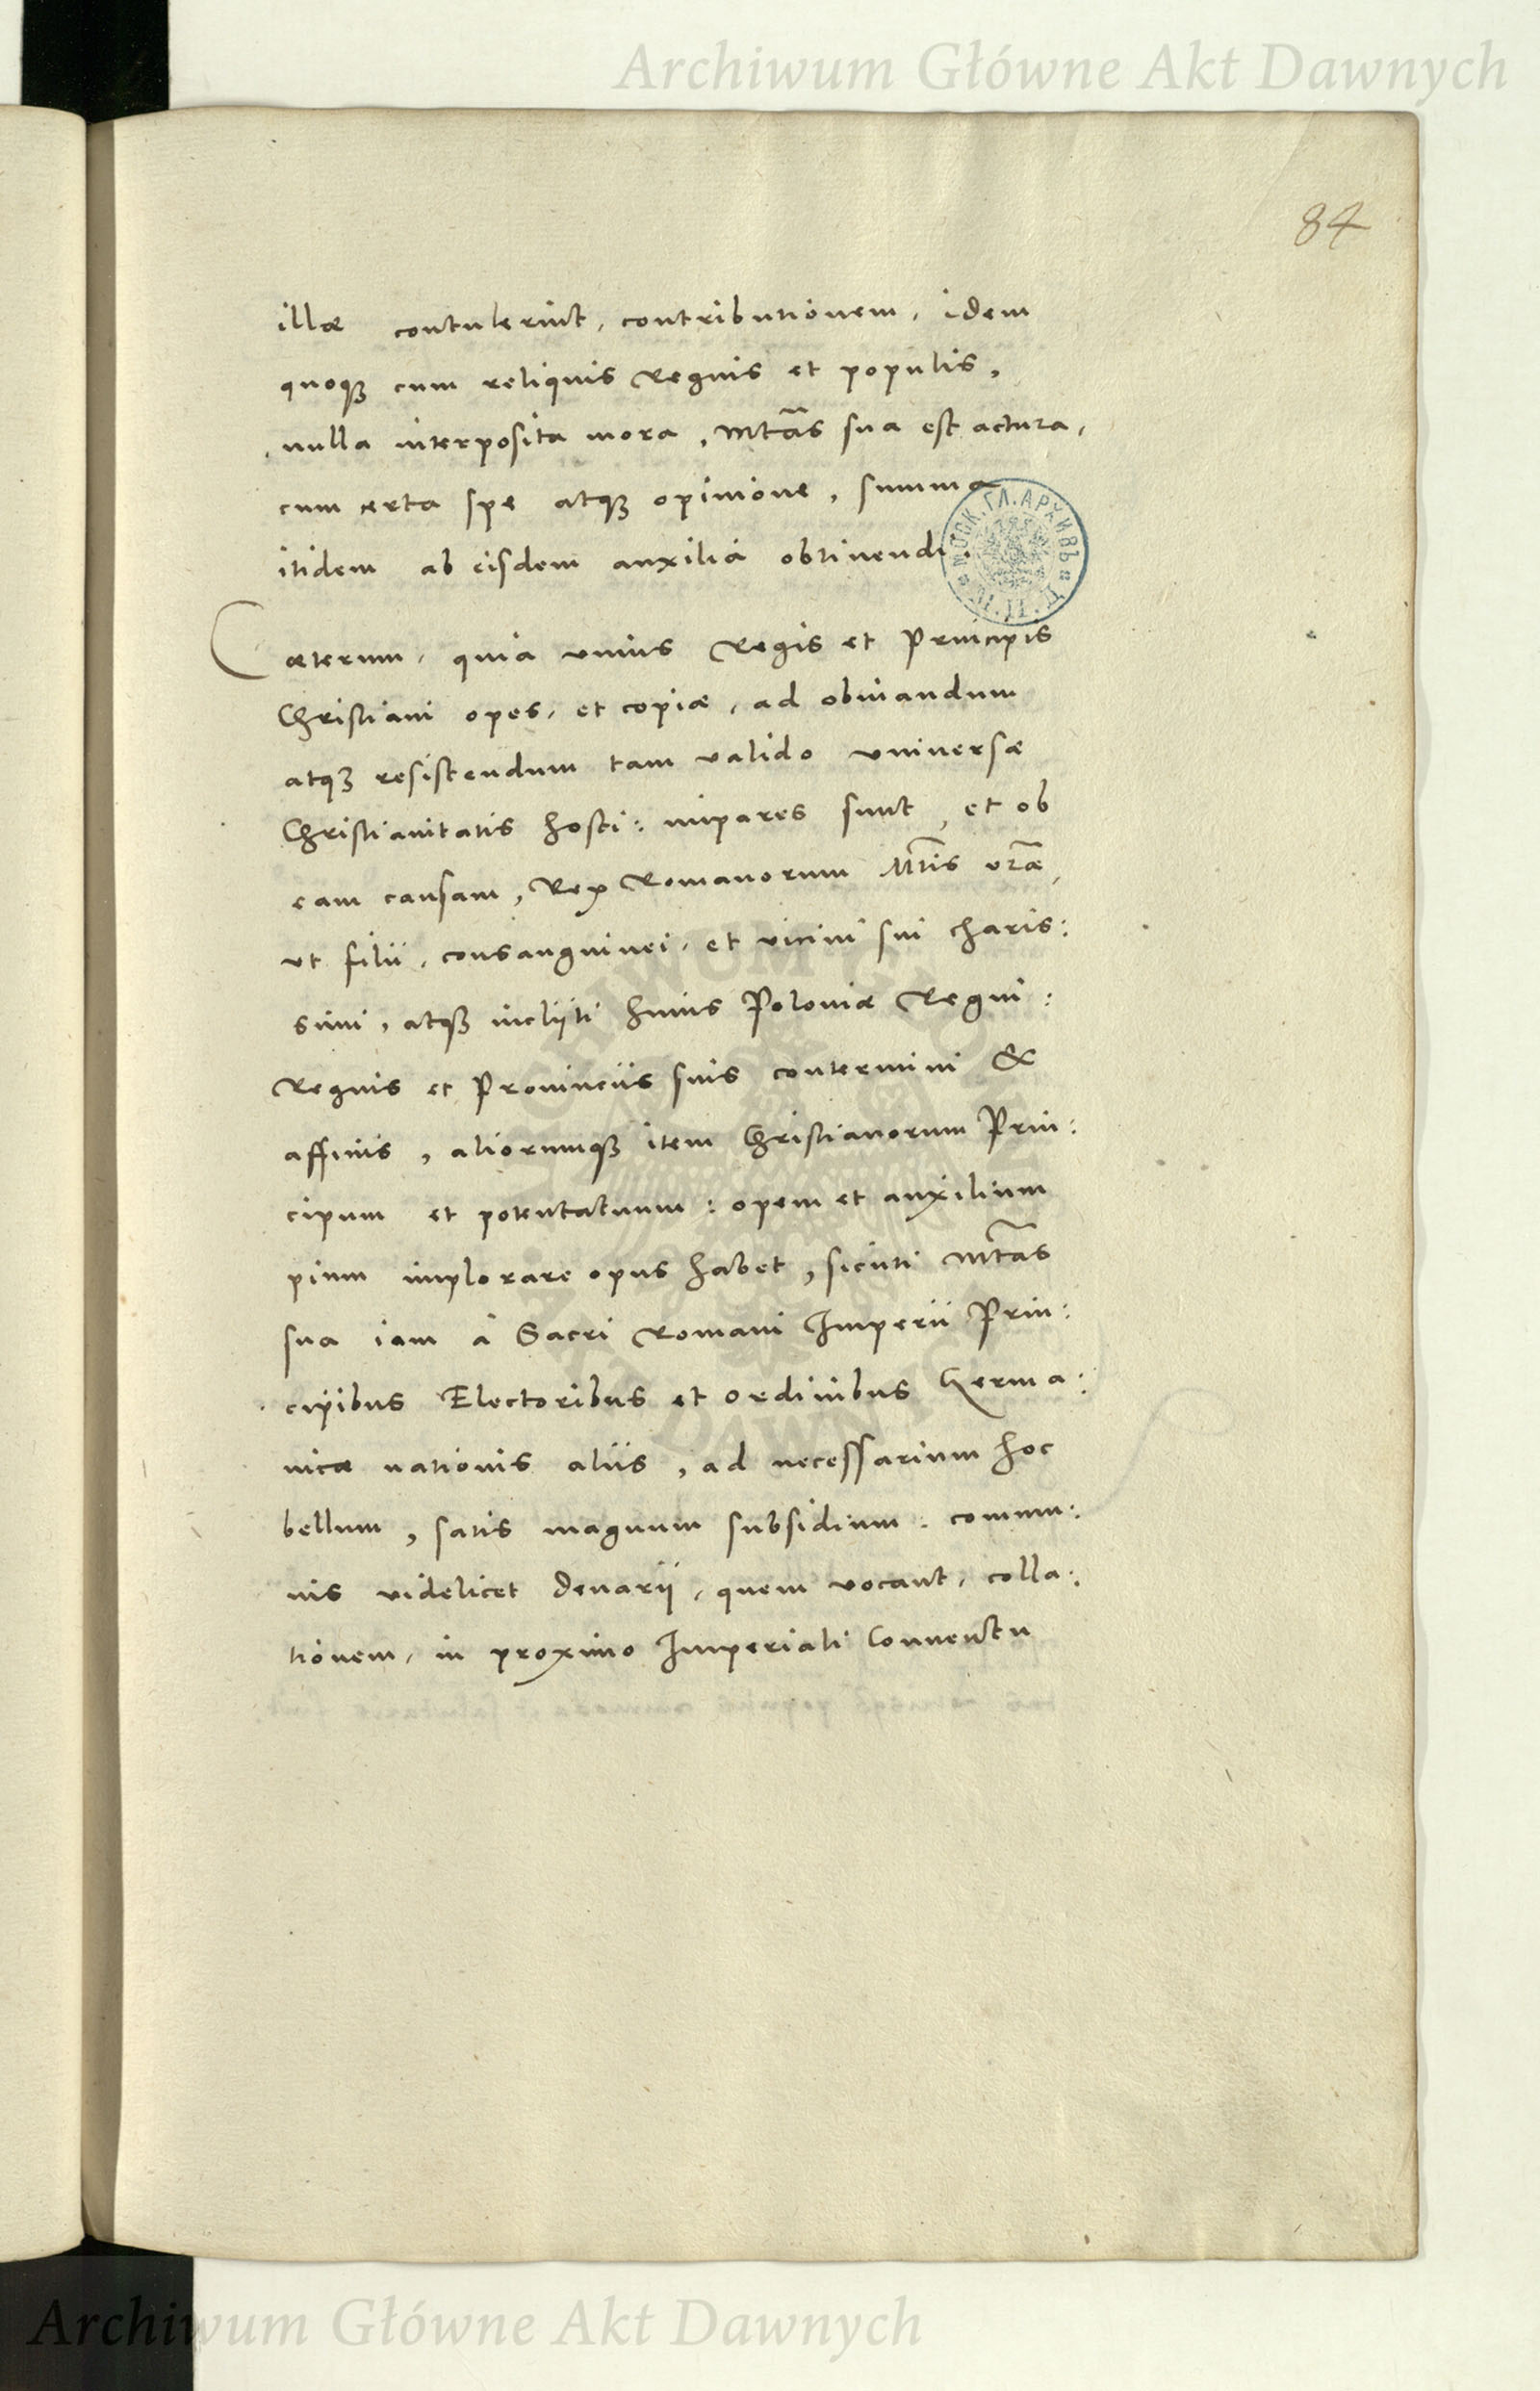 Archiwum Główne Akt Dawnych
84
illæ contulerint, contributionem, idem
quoqȝ cum reliquis Regnis et populis,
nulla interposita mora, Mtãs sua est actura,
cum certa spe atqȝ opinione, summa
itidem ab eisdem auxilia obtinendi.
МОСК. ГЛ. АРХИВЪ
Cæterum, quia unius Regis et Principis
Christiani opes, et copiæ, ad obviandum
atqȝ resistendum tam valido universæ
Christianitatis hosti: impares sunt, et ob
eam causam, Rex Romanorum Mtis vræ,
ut filii, consanguinei, et vicini sui charis:
simi, atqȝ incliti huius Poloniæ Regni:
Regnis et Provinciis suis contermini &
affinis, aliorumqȝ item Christianorum Prin:
cipum et potentatuum: opem et auxilium
pium implorare opus habet, sicuti Mtãs
sua iam à Sacri Romani Imperii Prin:
cipibus Electoribus et ordinibus Germa:
nicæ nationis aliis, ad necessarium hoc
bellum, satis magnum subsidium: commu:
nis videlicet Denarij, quem vocant, colla:
tionem, in proximo Imperiali Conventu
Archiwum Główne Akt Dawnych